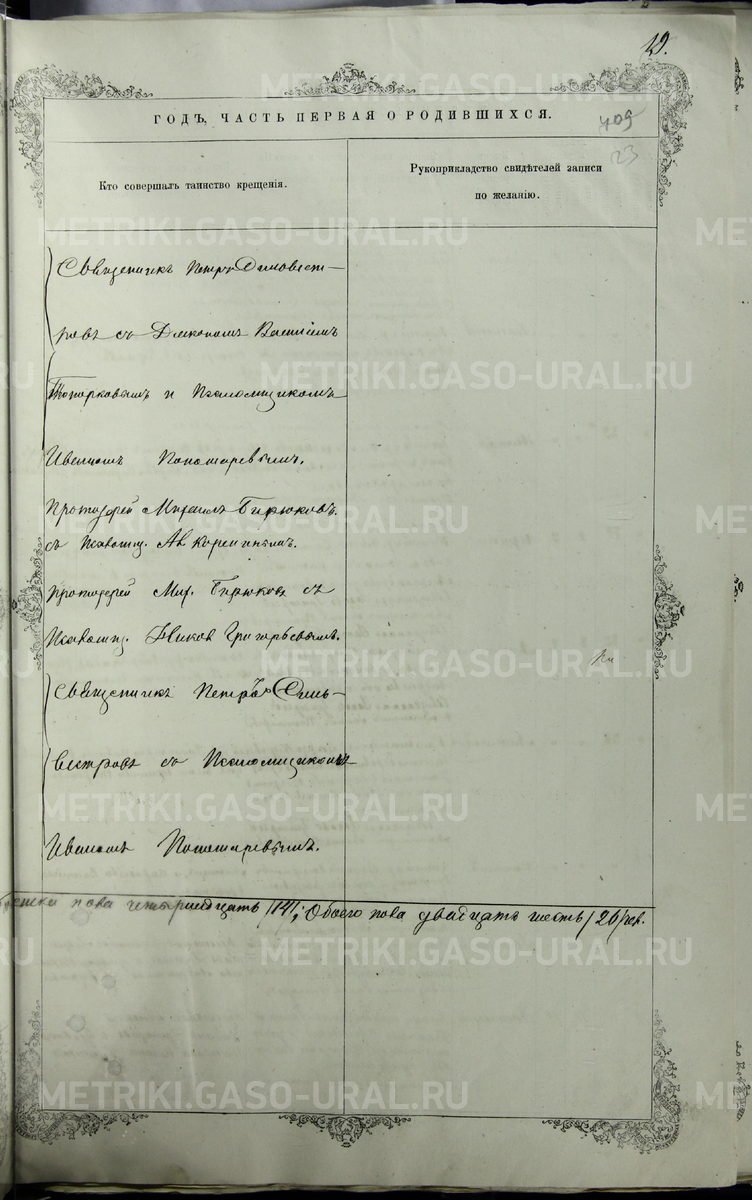 29.
ГОДЪ, ЧАСТЬ ПЕРВАЯ О РОДИВШИХСЯ.
409
23
Кто совершалъ таинство крещенія.
Рукоприкладство свидѣтелей записи
по желанію.
Священникъ Петръ Сильвест-
ровъ съ Діакономъ Василіемъ
Топорковымъ и Псаломщикомъ
Иваномъ Пономаревымъ.
Протоіерей Михаилъ Бирюковъ
съ Псаломщ.
Протоіерей Мих. Бирюковъ съ
Псаломщ. Григорьевымъ.
Священникъ Петръ Силь-
вестровъ съ Псаломщикомъ
Иваномъ Пономаревымъ.
пола четырнадцать /14/; Обоего пола двадцать шесть /26/ чел.
METRIKI.GASO-URAL.RU